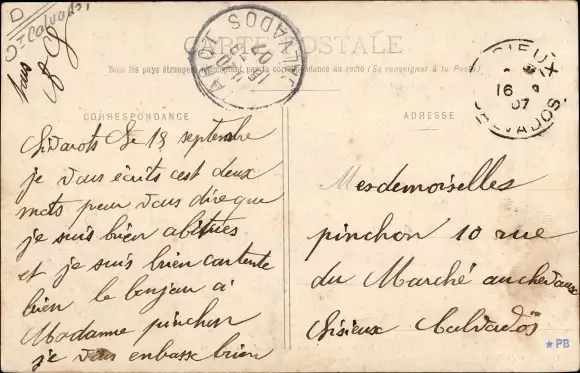 D
Ct Calvados
CARTE POSTALE
Tous les pays étrangers n'acceptent pas la correspondance au recto (Se renseigner à la Poste)
CALVADOS
07
LISIEUX
16 9
07
CALVADOS
CORRESPONDANCE
ADRESSE
le 18 septembre
je vous écrits cest deux
mots pour vous dire que
je suis bien abitues
et je suis bien contente
bien le bonjour à
Madame pinchon
je vous enbasse bien
tous
Mesdemoiselles
pinchon 10 rue
du Marché au chevaux
Lisieux Calvados
★PB